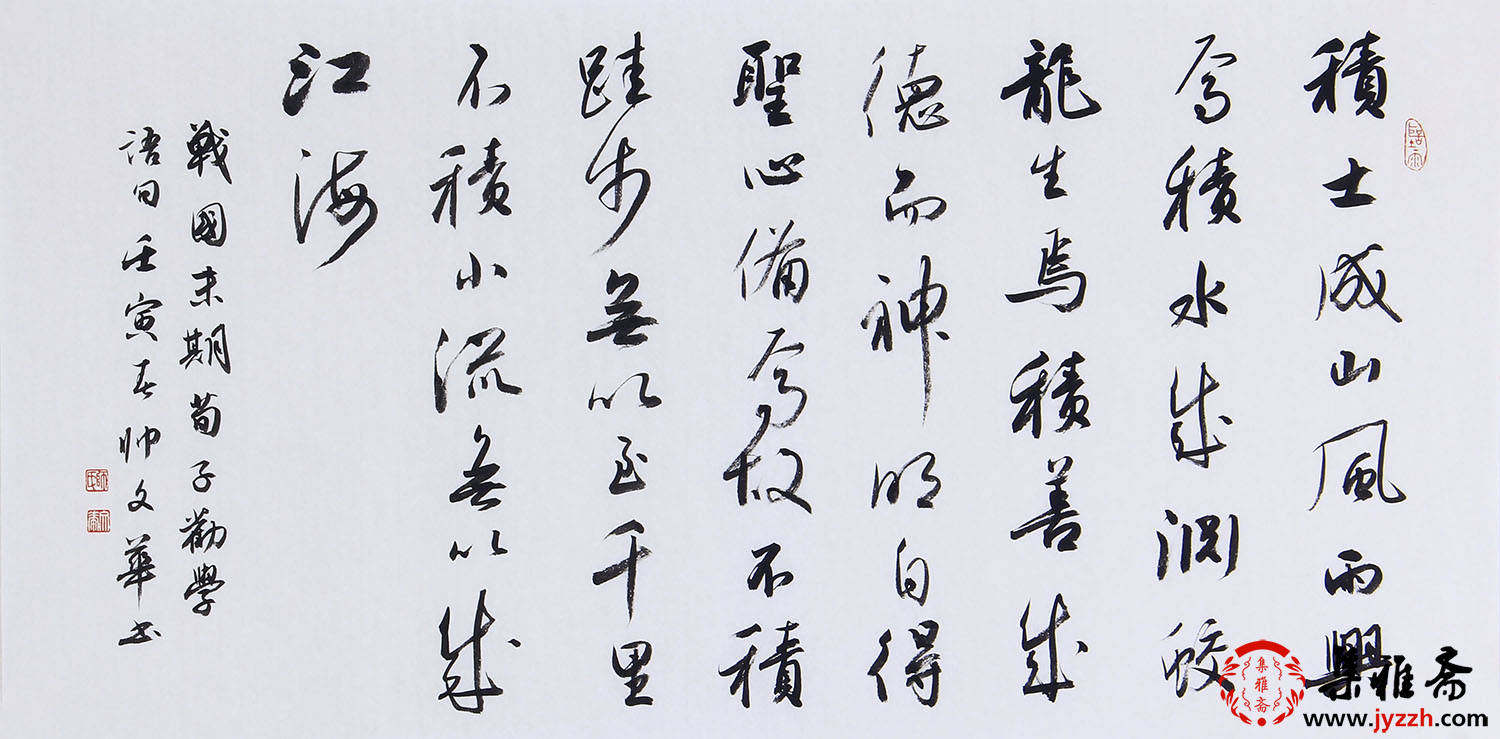 積土成山風雨興
焉積水成淵蛟
龍生焉積善成
德而神明自得
聖心備焉故不積
跬步無以至千里
不積小流無以成
江海
戰國末期荀子勸學
語句壬寅春帥文華書
集雅斋
集雅斋
www.jyzzh.com